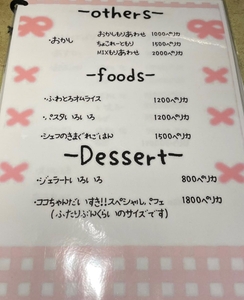 -others-
・おかし おかしもりあわせ 1000ペリカ
ちょこれーともり 1500ペリカ
MIXもりあわせ 2000ペリカ
-foods-
・ふわとろオムライス 1200ペリカ
・パスタいろいろ 1200ペリカ
・シェフのきまぐれごはん 1500ペリカ
-Dessert-
・ジェラートいろいろ 800ペリカ
・ココちゃんだいすき!!スペシャルパフェ 1800ペリカ
(ふたりぶんくらいのサイズです)